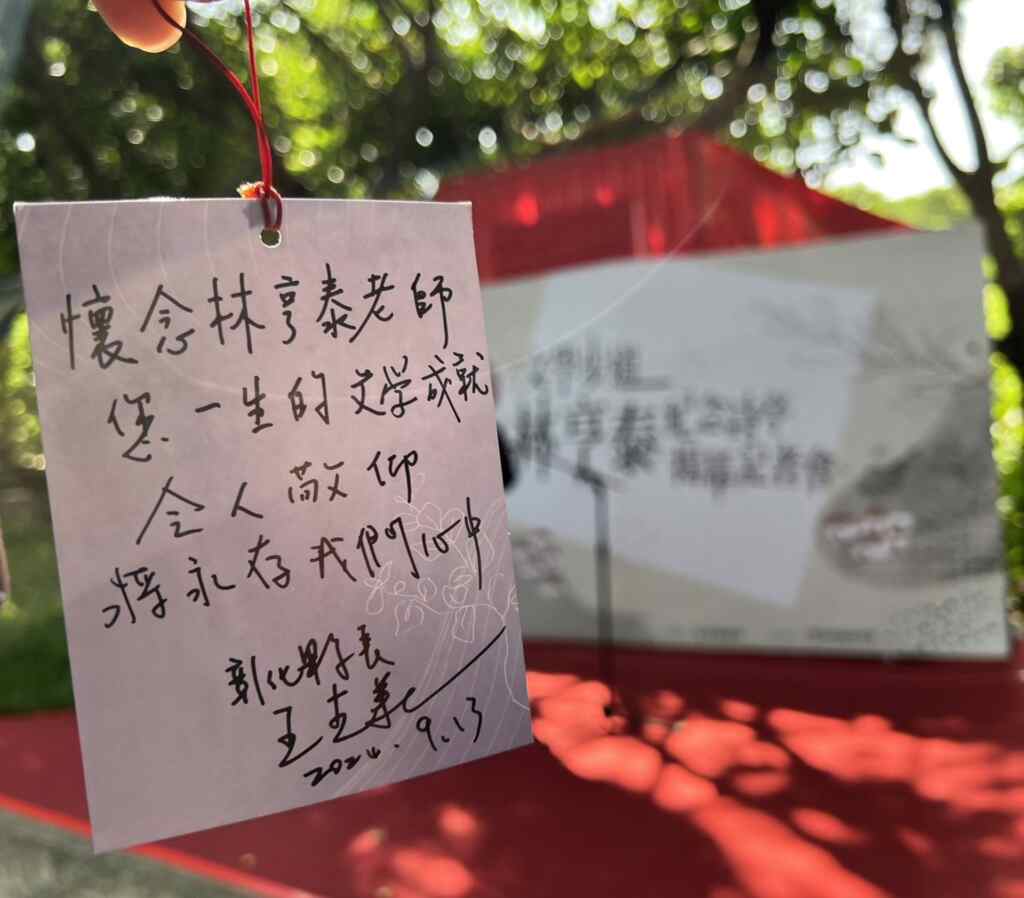 懷念林亨泰老師
您一生的文学成就
令人敬仰
將永存我們心中
彰化縣長
王惠美
2024.9.13
林亨泰